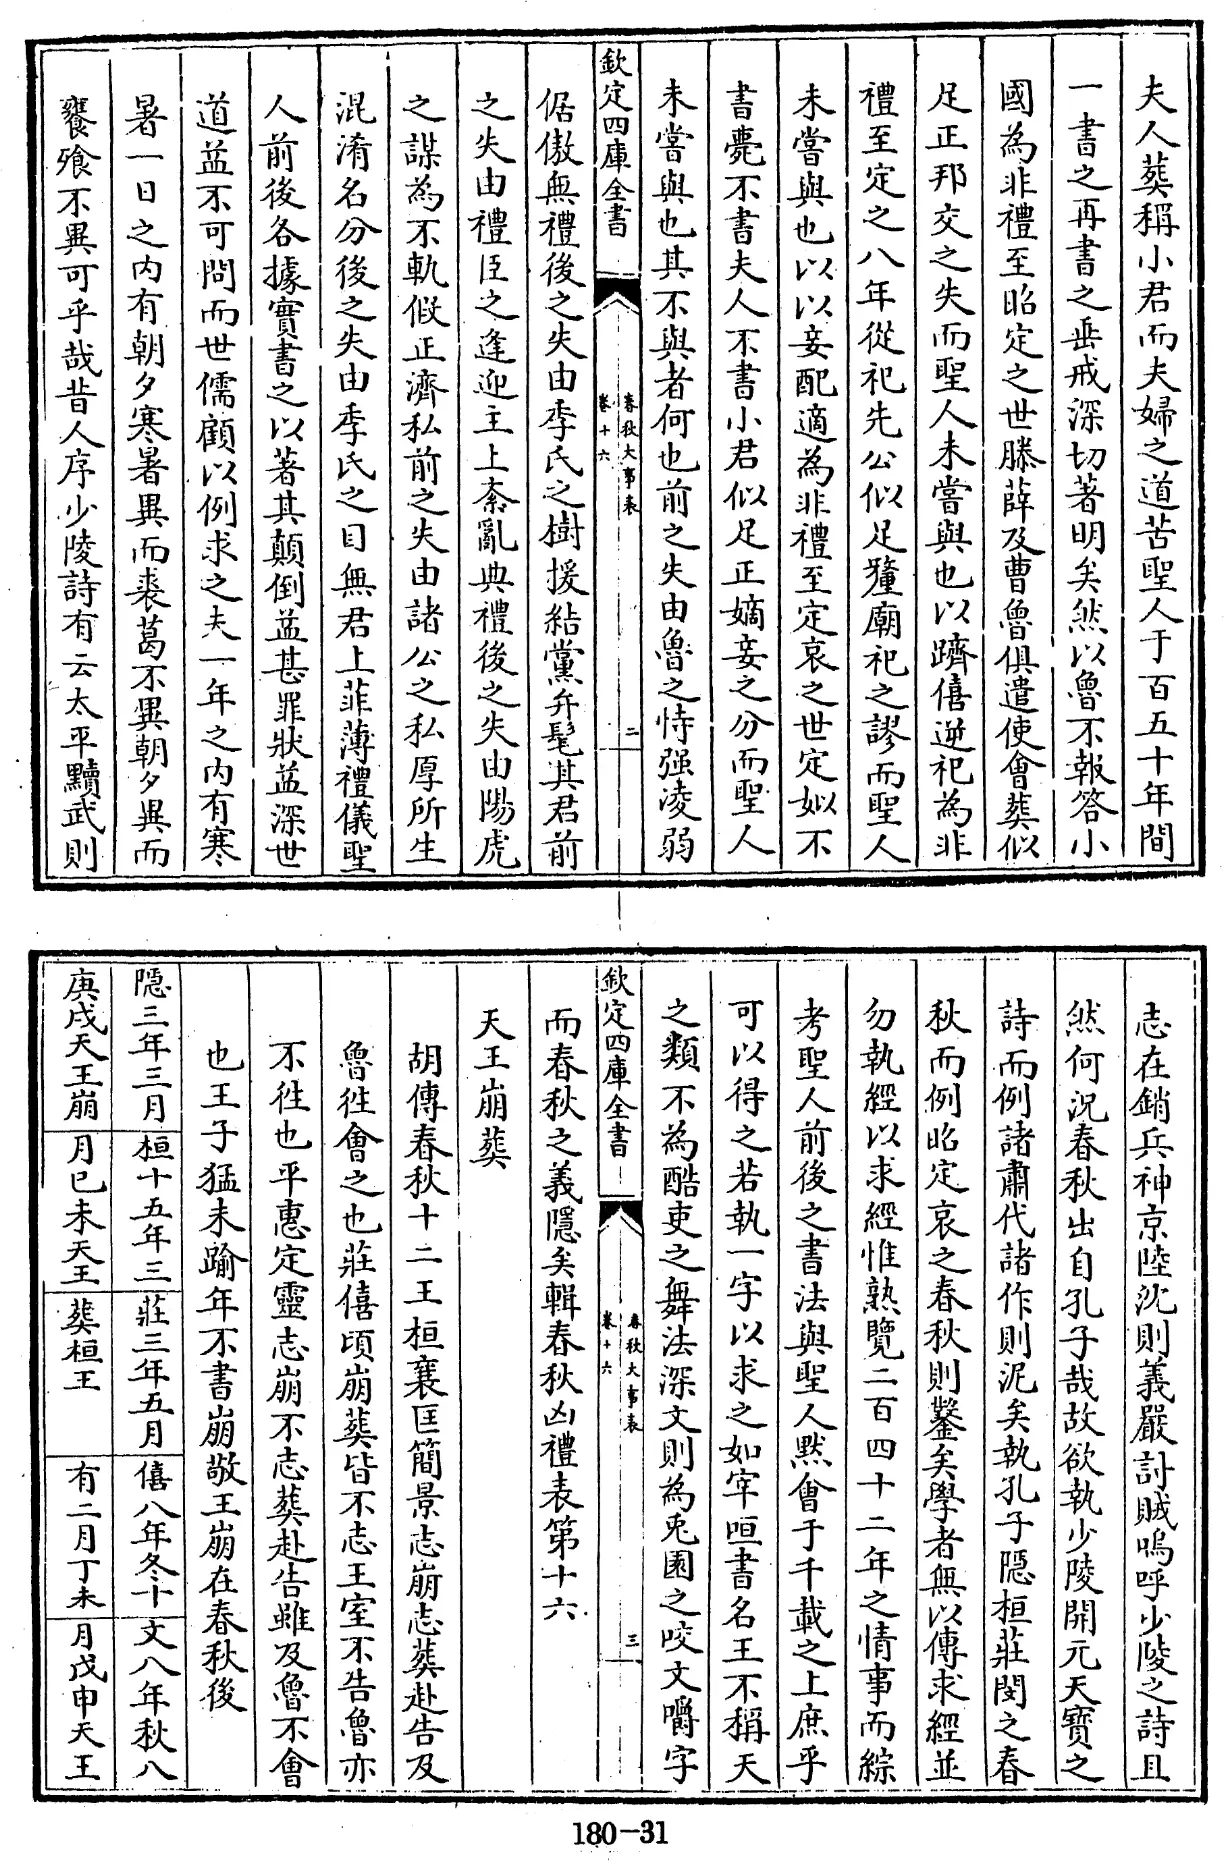 夫人葬稱小君而夫婦之道苦聖人于百五十年間
一書之再書之垂戒深切著明矣然以魯不報答小
國為非禮至昭定之世滕薛及曹魯俱遣使會葬似
足正邦交之失而聖人未嘗與也以躋僖逆祀為非
禮至定之八年從祀先公似足釐廟祀之謬而聖人
未嘗與也以以妾配適為非禮至定哀之世定姒不
書薨不書夫人不書小君似足正嫡妾之分而聖人
未嘗與也其不與者何也前之失由魯之恃强凌弱
欽定四庫全書
春秋大事表
卷十六
二
倨傲無禮後之失由季氏之樹援結黨弁髦其君前
之失由禮臣之逢迎主上紊亂典禮後之失由陽虎
之謀為不軌假正濟私前之失由諸公之私厚所生
混淆名分後之失由季氏之目無君上菲薄禮儀聖
人前後各據實書之以著其顛倒益甚罪狀益深世
道益不可問而世儒顧以例求之夫一年之內有寒
暑一日之內有朝夕寒暑異而裘葛不異朝夕異而
饔飱不異可乎哉昔人序少陵詩有云太平黷武則
志在銷兵神京陸沈則義嚴討賊嗚呼少陵之詩且
然何況春秋出自孔子哉故欲執少陵開元天寶之
詩而例諸肅代諸作則泥矣執孔子隱桓莊閔之春
秋而例昭定哀之春秋則鑿矣學者無以傳求經並
勿執經以求經惟熟覽二百四十二年之情事而綜
考聖人前後之書法與聖人默會于千載之上庶乎
可以得之若執一字以求之如宰咺書名王不稱天
之類不為酷吏之舞法深文則為兎園之咬文嚼字
欽定四庫全書
春秋大事表
卷十六
三
而春秋之義隱矣輯春秋凶禮表第十六
天王崩葬
胡傳春秋十二王桓襄匡簡景志崩志葬赴告及
魯往會之也莊僖頃崩葬皆不志王室不告魯亦
不往也平惠定靈志崩不志葬赴告雖及魯不會
也王子猛未踰年不書崩敬王崩在春秋後
隱三年三月
庚戌天王崩
桓十五年三
月巳未天王
莊三年五月
葬桓王
僖八年冬十
有二月丁未
文八年秋八
月戊申天王
180-31